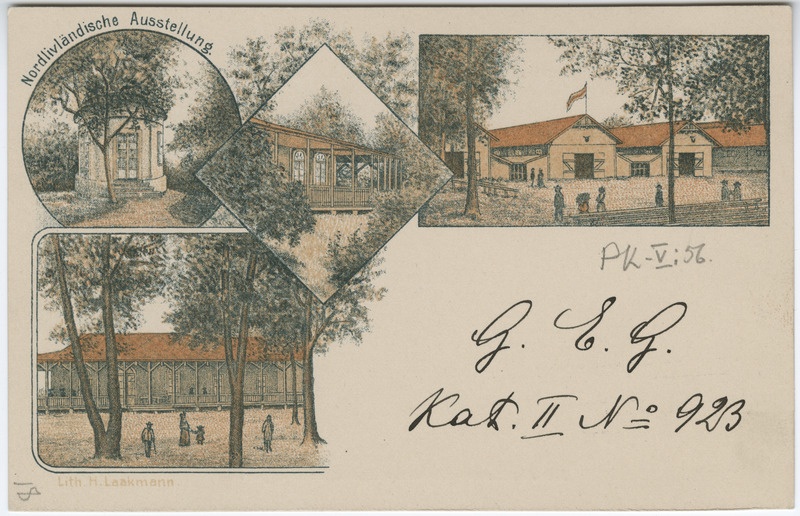 Nordlivländische Ausstellung.
PK-V:56.
G. E. G.
Kat. II No 923
Lith. H. Laakmann.